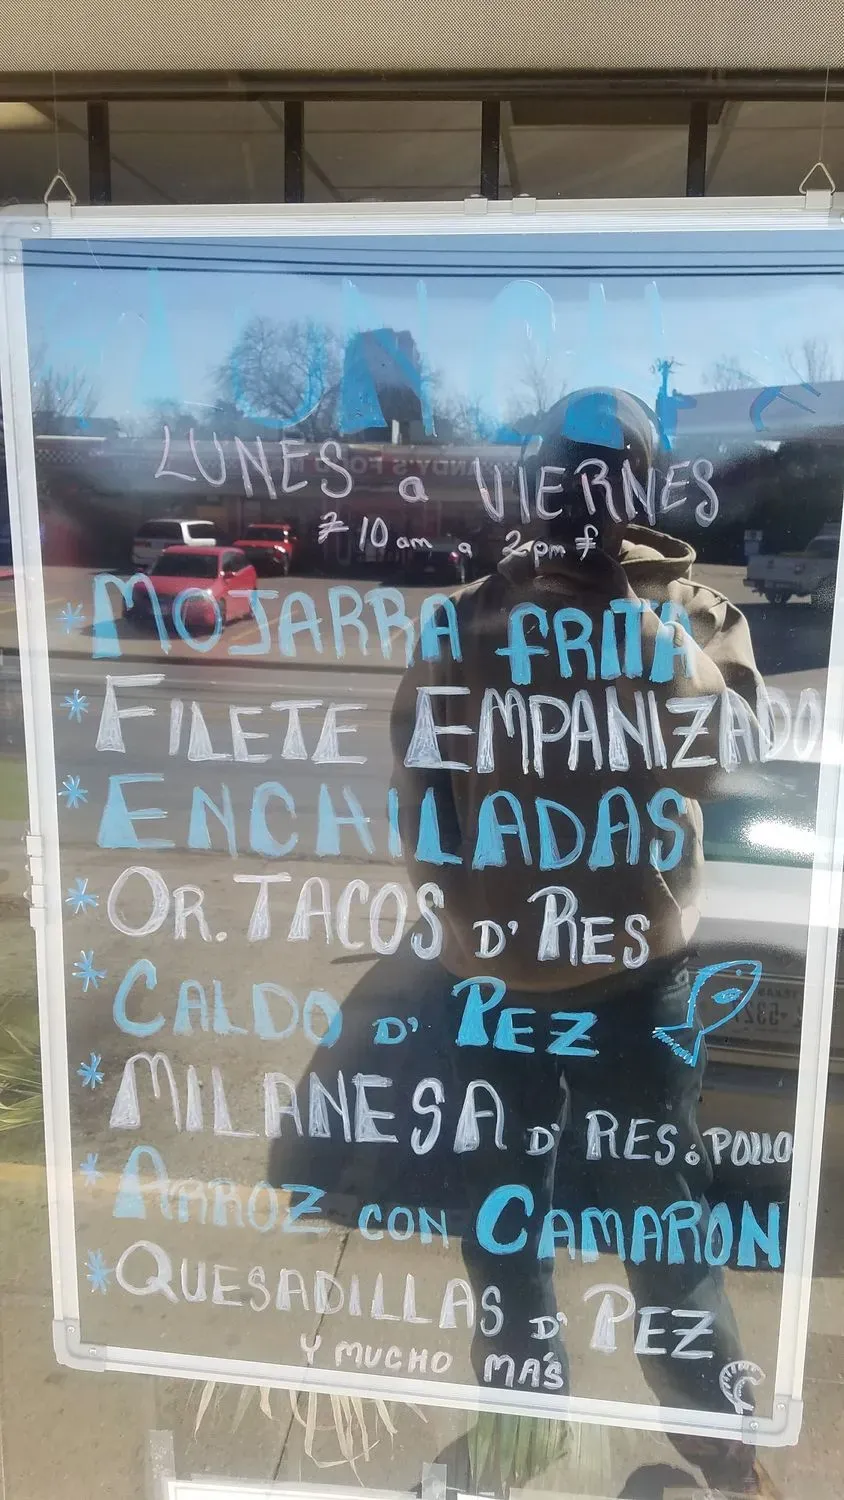 LUNES a VIERNES
10 am a 2 pm
* MOJARRA FRITA
* FILETE EMPANIZADO
* ENCHILADAS
* OR. TACOS D' RES
* CALDO D' PEZ
* MILANESA D' RES ó POLLO
* ARROZ CON CAMARON
* QUESADILLAS D' PEZ
Y MUCHO MÁS